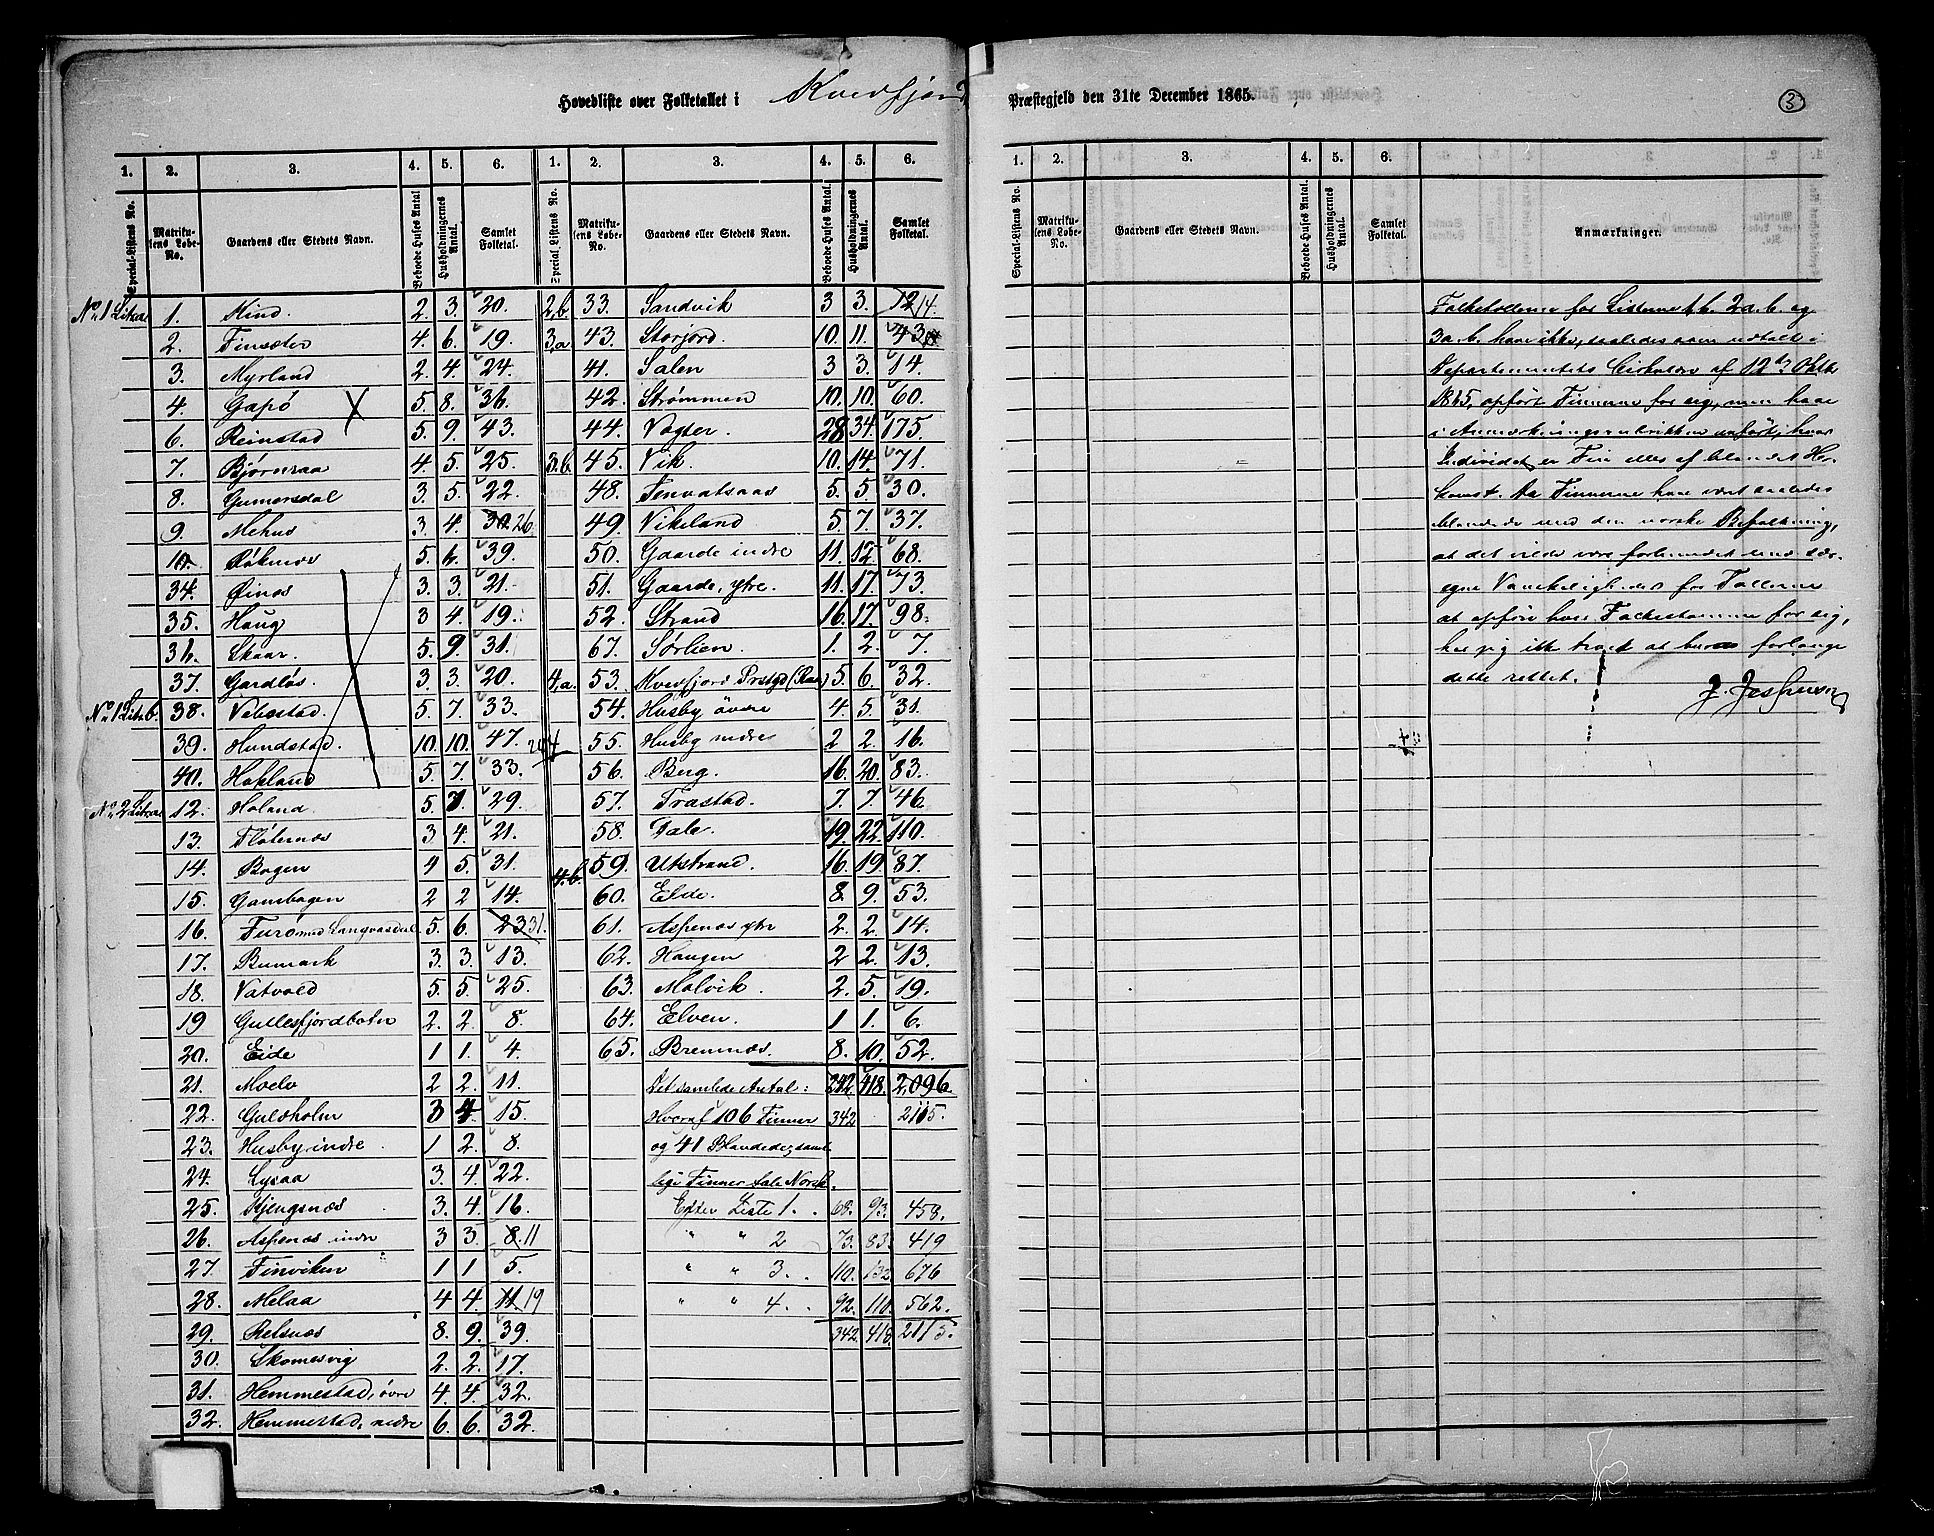 Hovedliste over Folketallet i Kvedfjord Præstegjeld den 31te December 1865.
3
1. 2. 3. 4. 5. 6. 1. 2. 3. 4. 5. 6. 1. 2. 3. 4. 5. 6.
Special-Listens No. Matrikulens Løbe-No. Gaardens eller Stedets Navn. Beboede Huses Antal Husholdningernes Antal. Samlet Folketal. Special Listens No. Matrikulens Løbe-No. Gaardens eller Stedets Navn. Beboede Huses Antal. Husholdningernes Antal. Samlet Folketal. Special-Listens No. Matrikulens Løbe-No. Gaardens eller Stedets Navn. Beboede Huses Antal. Husholdningernes Antal. Samlet Folketal. Anmærkninger.
No. 1 Litr. a 1. Kind. 2. 3. 20.
2. Finsæter 4. 6. 19.
3. Myrland 2. 4. 24.
4. Gapø 5. 8. 36.
6. Reinstad 5. 9. 43.
7. Bjørnraa 4. 5. 25.
8. Gumersdal 3. 5. 22.
9. Mehus 3. 4. 30 26
10. Røknes 5. 6. 39.
34. Øines 3. 3. 21.
35. Haug 3 4. 19.
36. Skaar. 5. 9. 31.
37. Gardløs. 3. 3. 20.
No. 1 Litr. b. 38. Vebostad. 5. 7. 33.
39. Hundstad. 10. 10. 47.
40. Hokland 5. 7. 33.
No. 2 Litr. a 12. Holand 5. 7. 29.
13. Fløternes 3 4. 21.
14. Bogen 4 5. 31.
15. Gausbogen 2 2 14.
16. Furø med Langvasdal 5. 6. 23 31.
17. Bumark 3. 3. 13.
18. Vatvold 5. 5. 25.
19 Gullesfjordbotn 2. 2. 8.
20. Eide 1 1. 4.
21. Moelv 2 2. 11.
22. Guldholm 3 4. 15.
23. Husby indre 1 2. 8.
24. Lysaa 3. 4. 22.
25. Kjengsnæs 3. 4. 16.
26. Aspenæs indre 3 3. 8. 11
27. Finviken 1 1 5.
28. Melaa 4 4. 11 19
29. Relsnæs 8. 9. 39.
30. Skomesvig 2. 2. 17.
31. Hemmestad, øvre 4. 4. 32.
32. Hemmestad, nedre 6. 6. 32.
2, b. 33. Sandvik 3 3. 12 14.
3, a 43. Storjord. 10. 11. 43
41. Salen 3 3. 14.
42. Strømmen 10. 10. 60.
44. Vogter. 28 34. 175.
3. b. 45. Vik. 10. 14. 71.
48. Fenvatsaas 5. 5. 30.
49. Vikeland 5. 7. 37.
50. Gaarde indre 11. 12. 68.
51. Gaarde, ytre. 11. 17. 73.
52. Strand 16. 17. 98.
67. Sørlien. 1. 2. 7.
4, a. 53. Kvedfjord Prstgd 5. 6. 32.
54. Husby øvre 4. 5. 31.
55. Husby nedre 2 2. 16.
56. Berg. 16. 20. 83.
57. Trastad. 7. 7. 46
58. Dale. 19. 22. 110.
4. b. 59. Utstrand. 16. 19 87.
60. Elde. 8. 9. 53.
61. Aspenes ytre 2. 2. 14.
62. Haugen 2 2. 13.
63. Molvik. 2. 5. 19.
64. Elven. 1 1. 6.
65. Bremnæs. 8. 10. 52.
Det samlede Antal: 342. 418. 2,096.
Hvoraf 106 Finner 342 2115.
og 41 Blandede; samt
lige Finner tale Norsk.
Efter Liste 1. 68. 93. 458.
" " 2 73. 83. 419
" " 3. 110. 132 676
" " 4. 92. 110. 562.
342. 418. 2115.
Folketællerne for Listerne 1 b. 2 a. b. og
3 a. b. have ikke, saaledes som udtalt i
Departementets Cirkulære af 12te Oktb.
1865, opført Finnerne for sig, men have
i Anmærkningsrubrikken anført, hvor
Individet er Fin eller af blandet Her-
komst. Da Finnerne have været saaledes
blandede med den norske Befolkning,
at det vilde være forbundet med sær-
egne Vanskeligheder for Tællerne
at opføre hver Folkestamme for sig,
har jeg ikke troet at burde forlange
dette rettet.
J. Jespersen